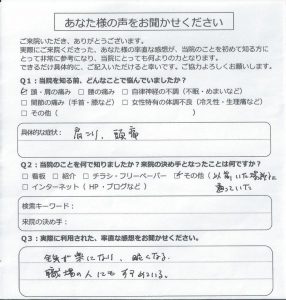 あなた様の声をお聞かせください
ご来院いただき、ありがとうございます。
実際にご来院くださった、あなた様の率直な感想が、当院のことを初めて知る方に
とって非常に参考になり、当院にとっても何よりの力となります。
できるだけ具体的に、ご記入いただけると幸いです。ご協力よろしくお願いします。
Q1:当院を知る前、どんなことで悩んでいましたか?
頭・肩の痛み □ 腰の痛み □ 自律神経の不調(不眠・めまいなど)
□ 関節の痛み(手首・膝など) □ 女性特有の体調不良(冷え性・生理痛など)
□ その他(
具体的な症状:
肩こり、頭痛
Q2:当院のことを何で知りましたか?来院の決め手となったことは何ですか?
□ 看板 □ 紹介 □ チラシ・フリーペーパー その他(以前いた場所に
□ インターネット(HP・ブログなど) 通っていた
検索キーワード:
来院の決め手:
Q3:実際に利用された、率直な感想をお聞かせください。
楽になり、眠くなる。
職場の人にもすすめている。